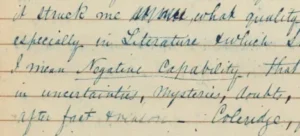 it struck me what quality
especially in Literature & which S
I mean Negative Capability, that
in uncertainties, mysteries, doubts,
after fact & reason — Coleridge,